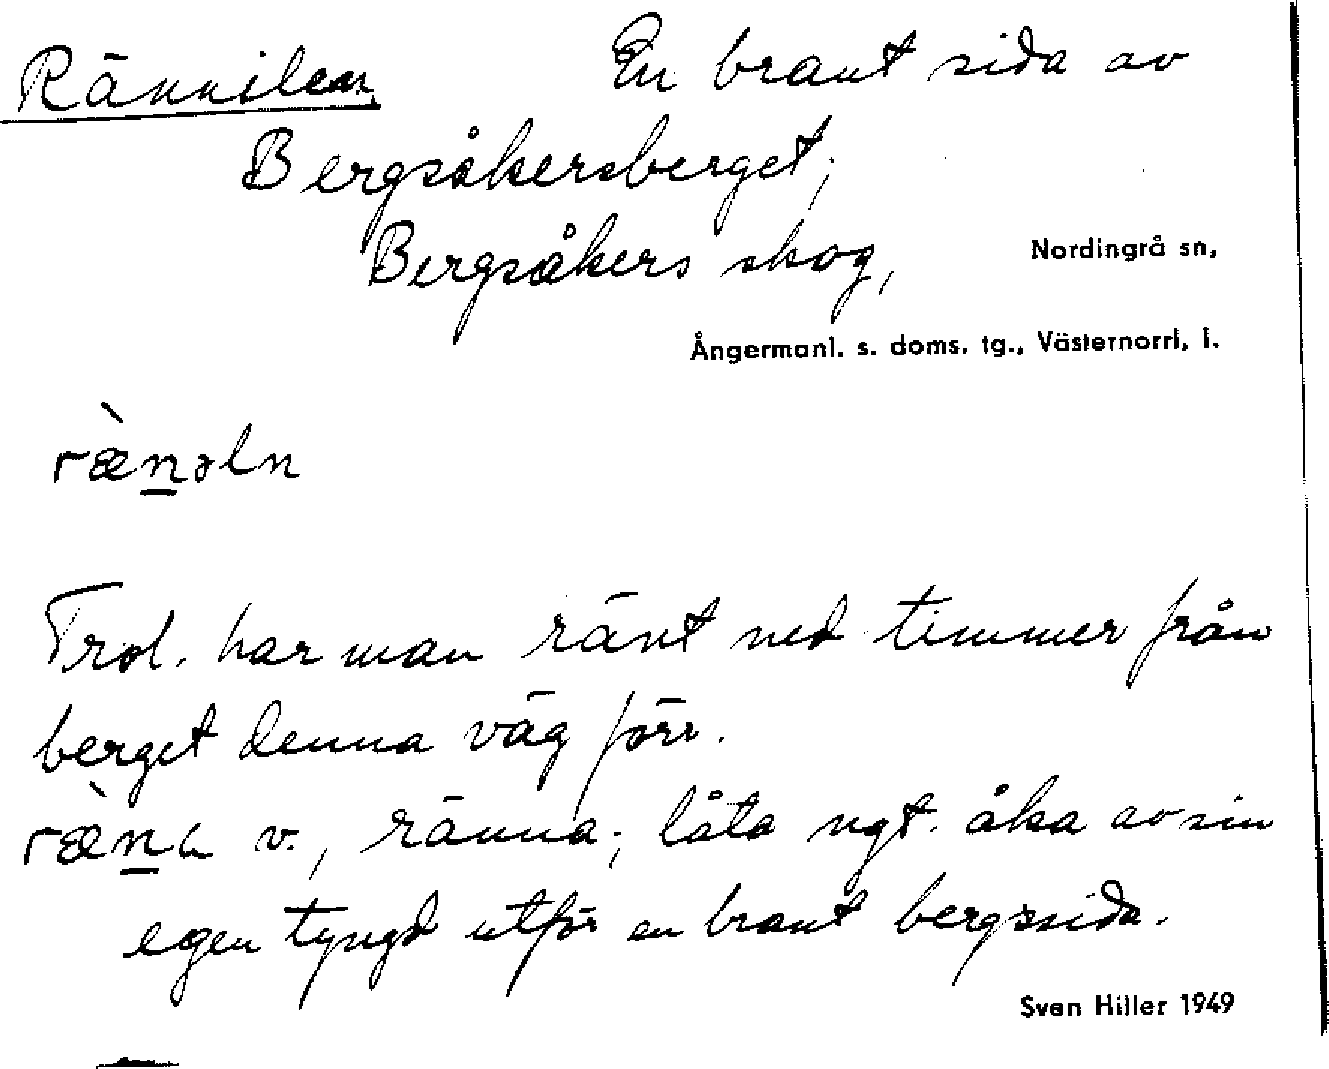 Rännilen, En brant sida av
Bergsåkersberget;
Bergsåkers skog, Nordingrå sn,
Ångermanl. s. doms. tg., Västernorrl. l.
ræ̀nəln
Trol. har man ränt ned timmer från
berget denna väg förr.
ræ̀na v., ränna; låta ngt. åka av sin
egen tyngd utför en brant bergssida.
Sven Hiller 1949